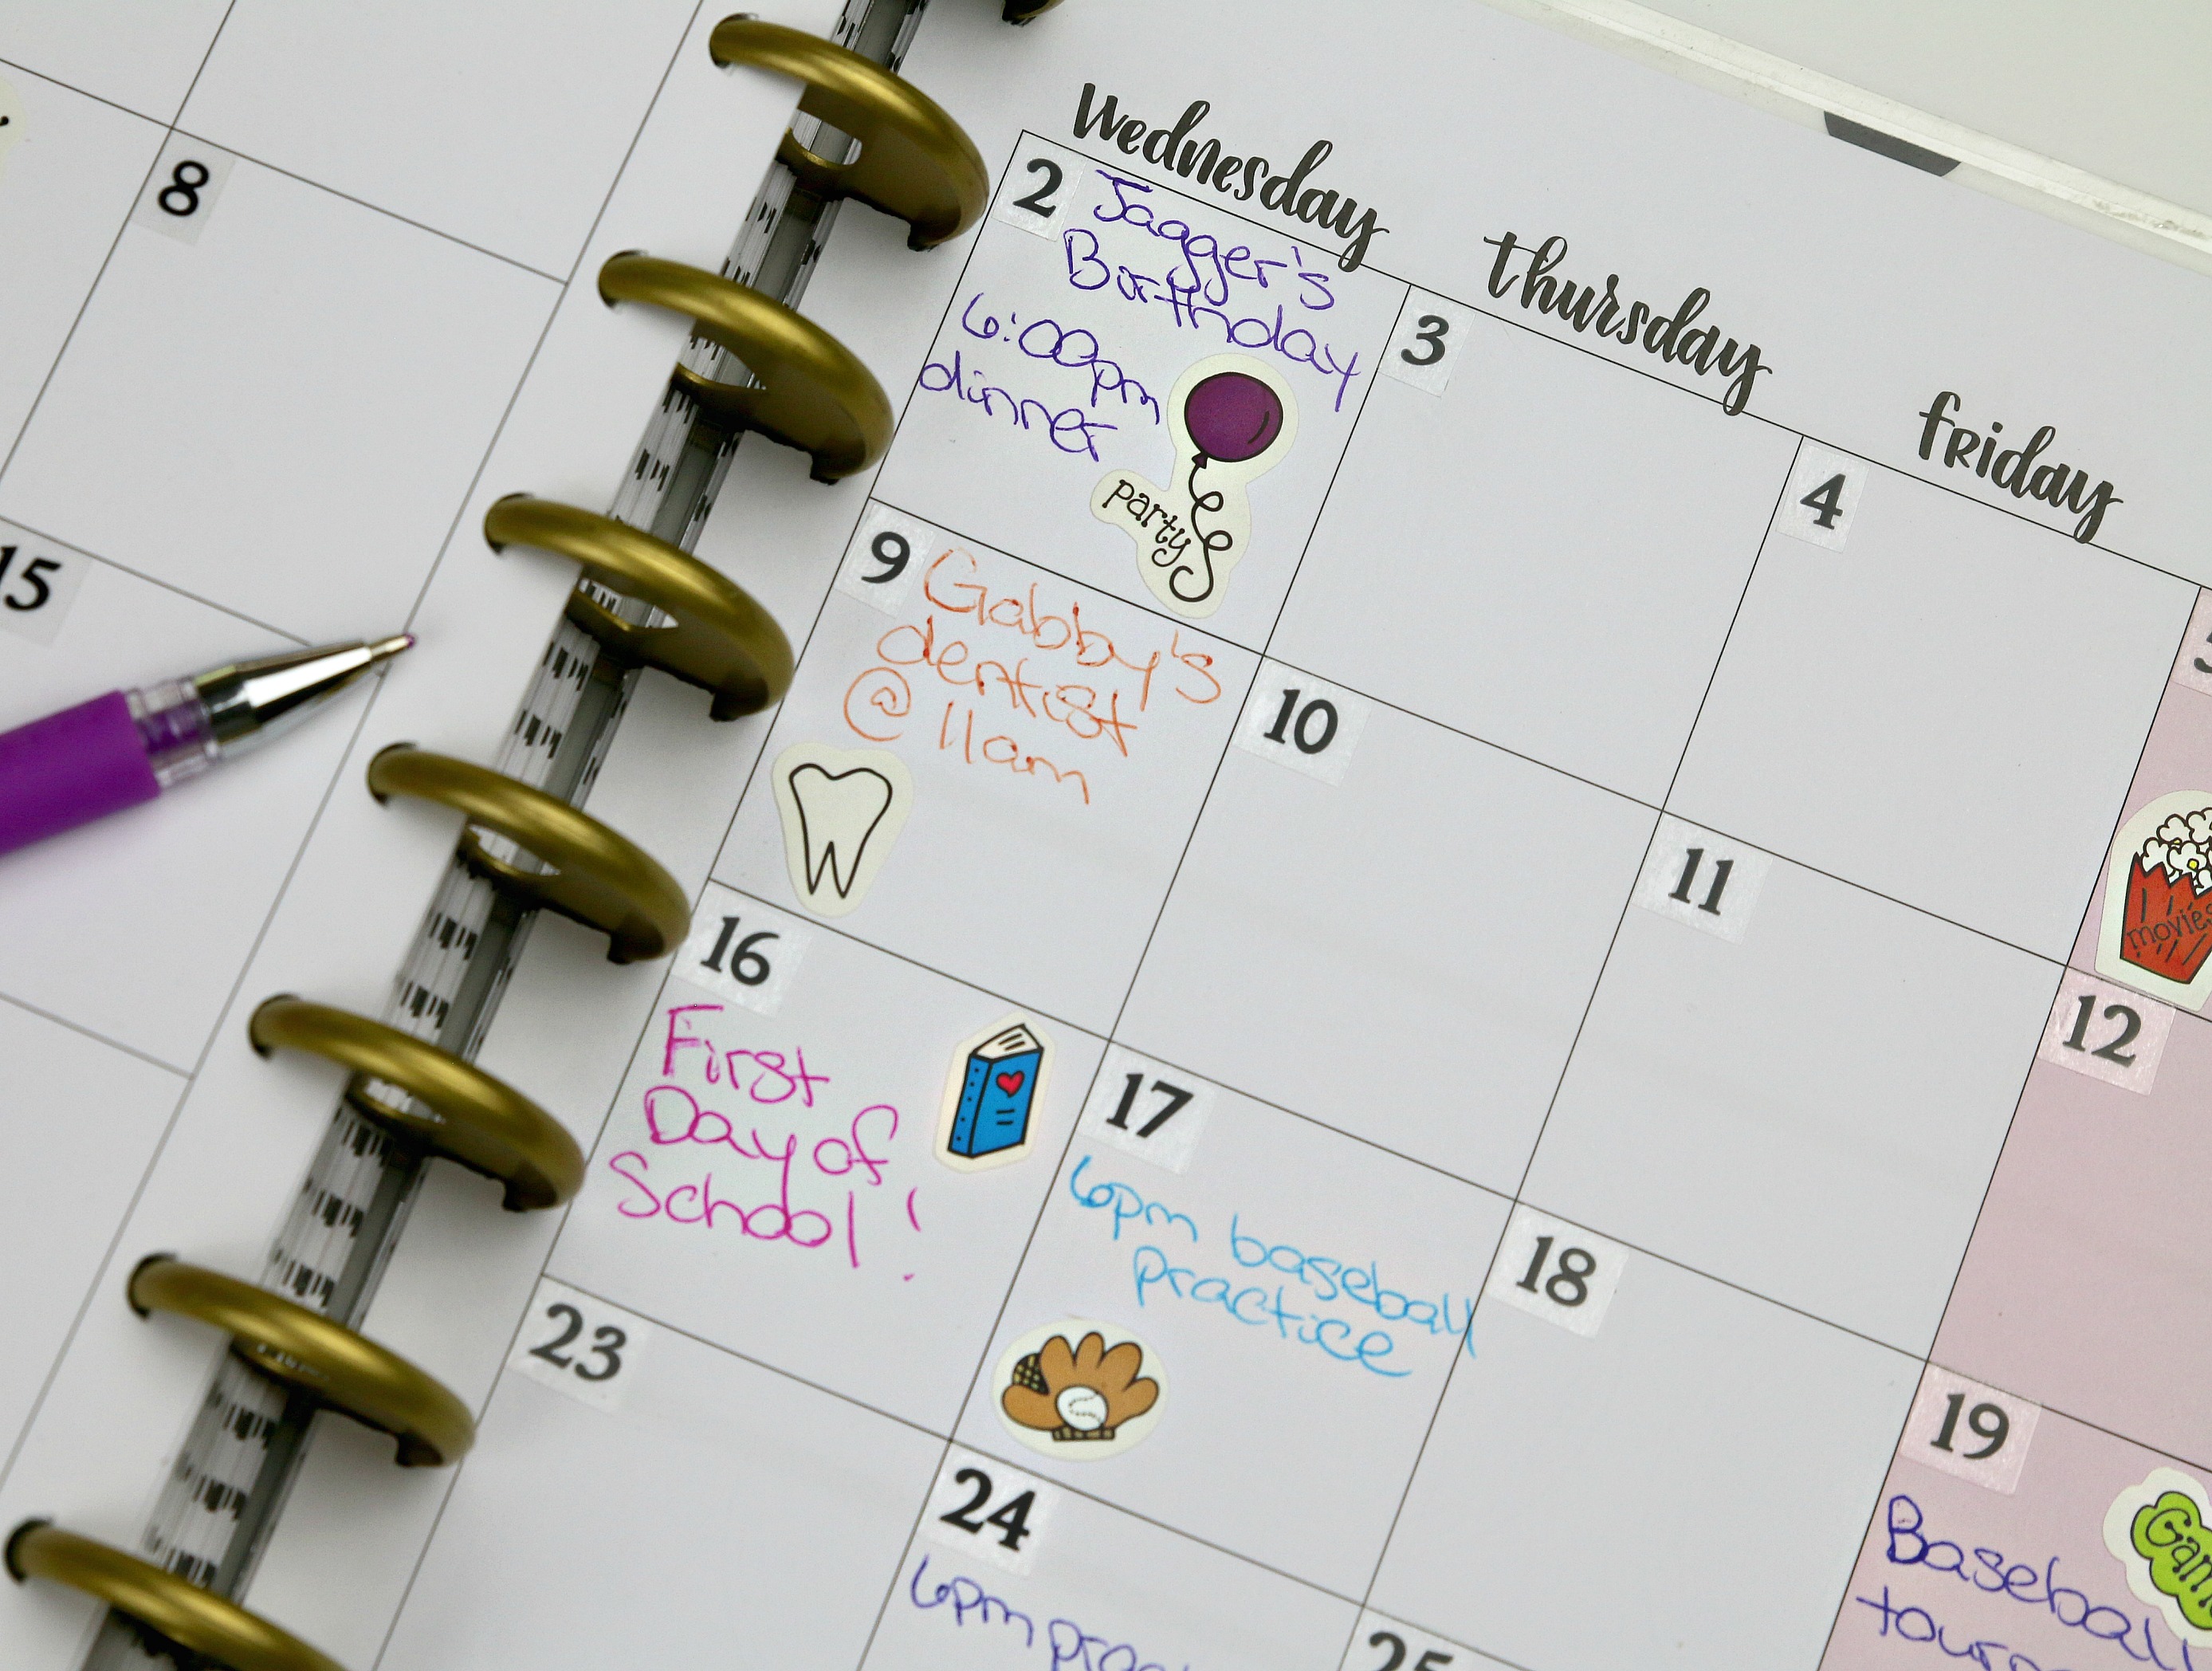 Wednesday
Thursday
Friday
8
15
2
Jagger's
Birthday
6:00pm
dinner
party
3
4
9
Gabby's
dentist
@ 11am
10
11
movies
12
16
First
Day of
School!
17
6pm baseball
practice
18
19
Baseball
23
24
6pm
25